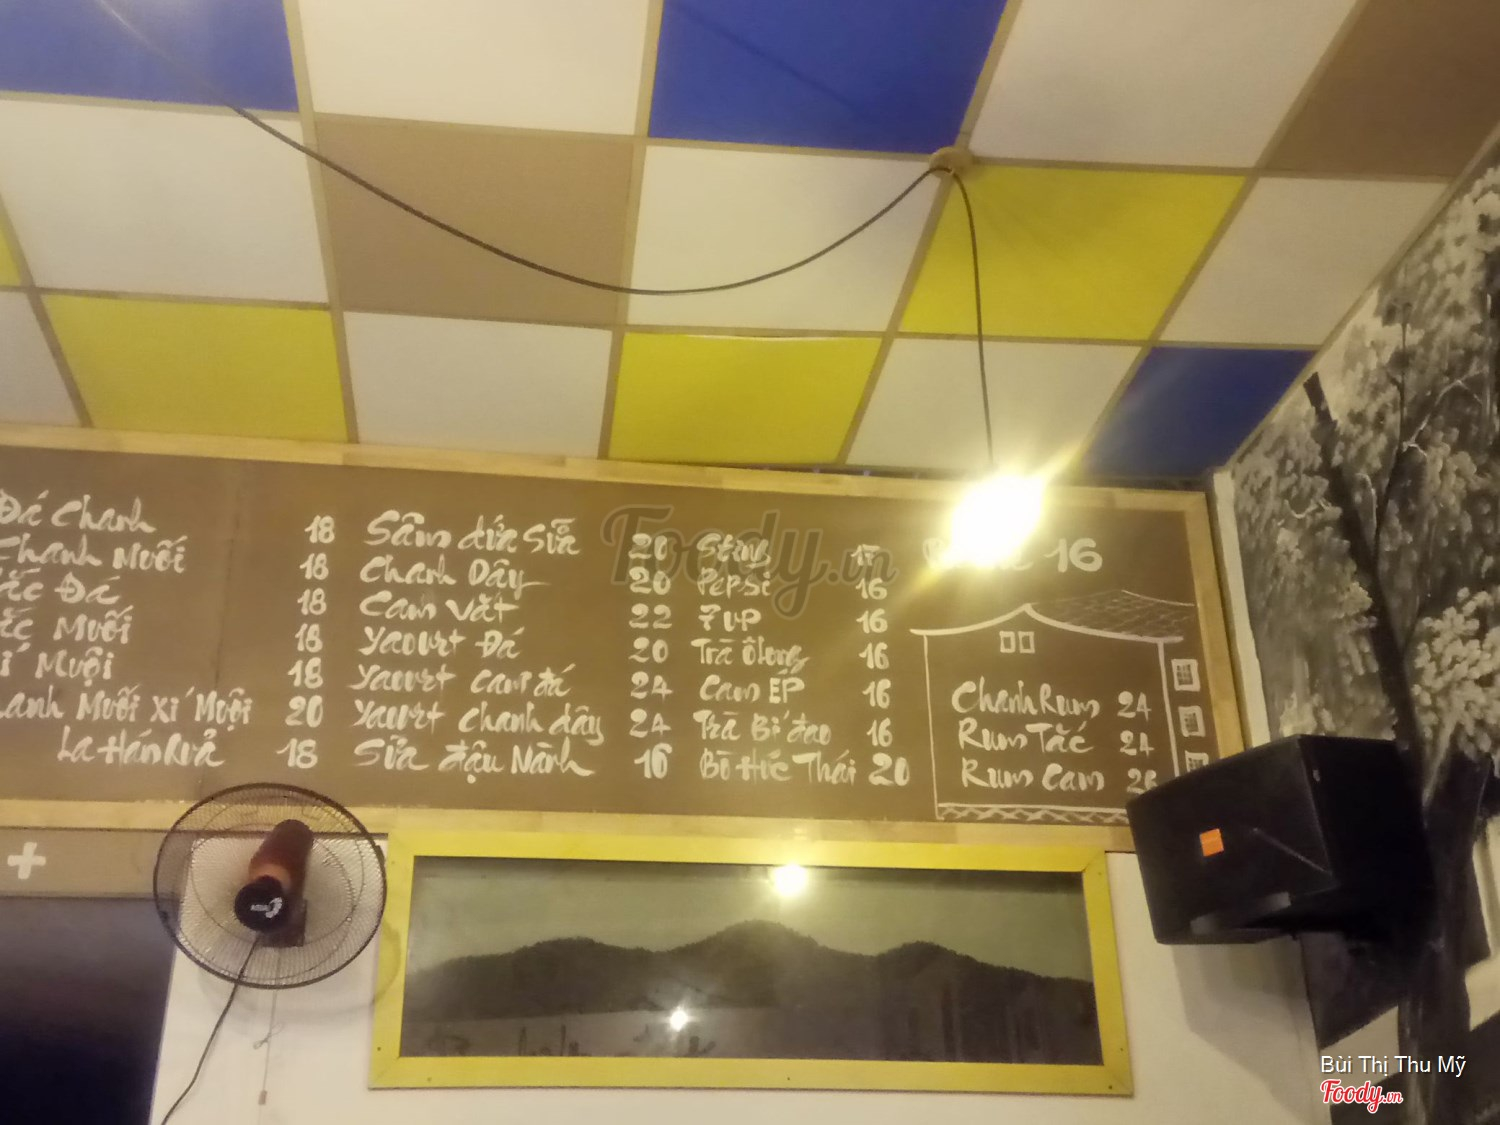 Đá Chanh 18
Chanh Muối 18
Tắc Đá 18
Tắc Muối 18
Xí Muội 18
Chanh Muối Xí Muội 20
La Hán Quả 18
Sâm dứa Sữa 20
Chanh Dây 20
Cam Vắt 22
Yaourt Đá 20
Yaourt Cam đá 24
Yaourt Chanh dây 24
Sữa đậu Nành 16
Sting 17
Pepsi 16
7 UP 16
Trà Ôlong 16
Cam ÉP 16
Trà Bí đao 16
Bò Húc Thái 20
16
Chanh Rum 24
Rum Tắc 24
Rum Cam 26
Foody.vn
Bùi Thị Thu Mỹ
Foody.vn